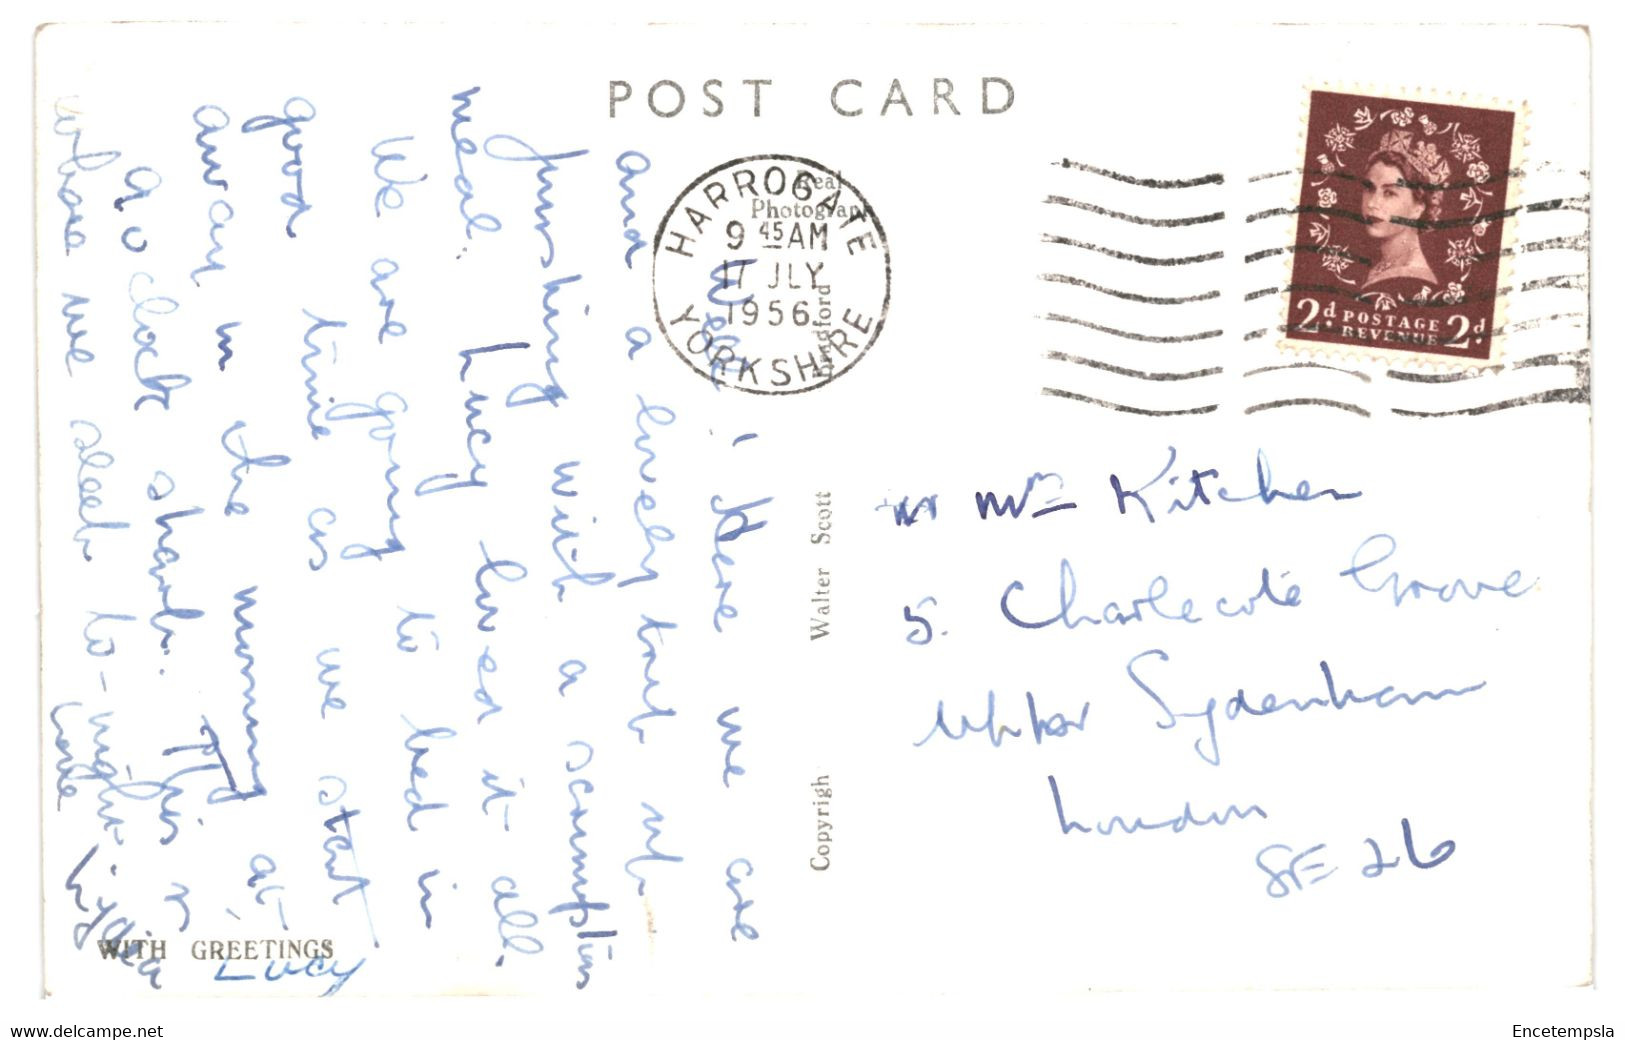 POST CARD
Real
Photograph
HARROGATE
9 45 AM
17 JLY
1956
YORKSHIRE
2d POSTAGE 2d
REVENUE
Mr Mrs Kitchen
5. Charlecote Grove
Upper Sydenham
London
SE 26
Copyright Walter Scott Bradford
Well! Here we are
and a lovely trip up
finishing with a scrumptious
meal. Lucy loved it all.
We are going to bed in
good time as we start
away in the morning at
9 o'clock sharp. This is
where we sleep to-night
love Lydia
Lucy
WITH GREETINGS
www.delcampe.net
Encetempsla